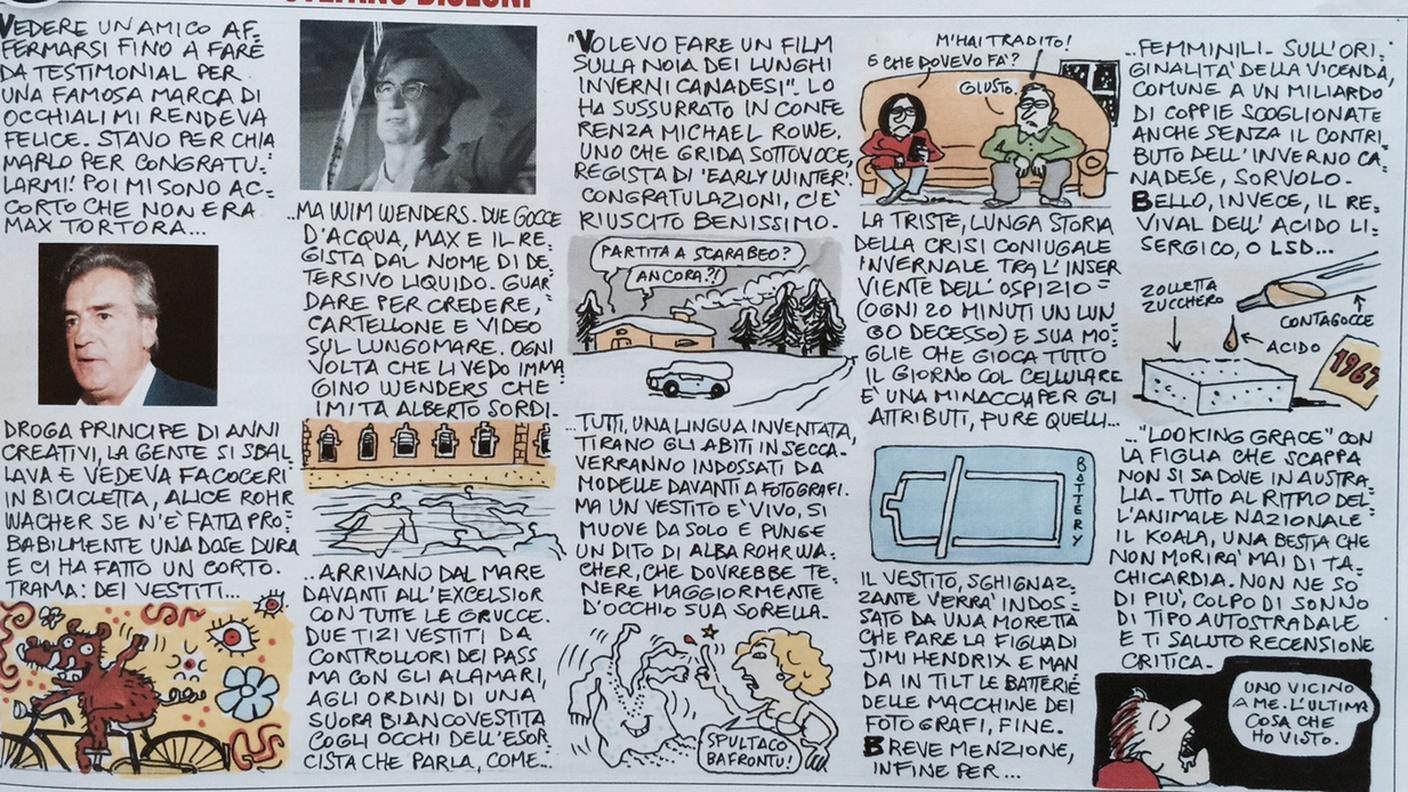 VEDERE UN AMICO AF=
FERMARSI FINO A FARE
DA TESTIMONIAL PER
UNA FAMOSA MARCA DI
OCCHIALI MI RENDEVA
FELICE. STAVO PER CHIA
MARLO PER CONGRATU=
LARMI! POI MI SONO AC=
CORTO CHE NON ERA
MAX TORTORA...
..MA WIM WENDERS. DUE GOCCE
D'ACQUA, MAX E IL RE=
GISTA DAL NOME DI DE=
TERSIVO LIQUIDO. GUAR=
DARE PER CREDERE,
CARTELLONE E VIDEO
SUL LUNGOMARE. OGNI
VOLTA CHE LI VEDO IMMA=
GINO WENDERS CHE
IMITA ALBERTO SORDI.
"VOLEVO FARE UN FILM
SULLA NOIA DEI LUNGHI
INVERNI CANADESI". LO
HA SUSSURRATO IN CONFE
RENZA MICHAEL ROWE,
UNO CHE GRIDA SOTTOVOCE,
REGISTA DI 'EARLY WINTER'.
CONGRATULAZIONI, C'È
RIUSCITO BENISSIMO.
PARTITA A SCARABEO?
ANCORA?!
M'HAI TRADITO!
E CHE DOVEVO FA'?
GIUSTO.
LA TRISTE, LUNGA STORIA
DELLA CRISI CONIUGALE
INVERNALE TRA L'INSER
VIENTE DELL'OSPIZIO=
(OGNI 20 MINUTI UN LUN
GO DECESSO) E SUA MO=
GLIE CHE GIOCA TUTTO
IL GIORNO COL CELLULARE
E' UNA MINACCIA PER GLI
ATTRIBUTI, PURE QUELLI...
..FEMMINILI. SULL'ORI=
GINALITA' DELLA VICENDA,
COMUNE A UN MILIARDO
DI COPPIE SCOGLIONATE
ANCHE SENZA IL CONTRI=
BUTO DELL'INVERNO CA=
NADESE, SORVOLO.
BELLO, INVECE, IL RE=
VIVAL DELL' ACIDO LI=
SERGICO, O LSD...
ZOLLETTA
ZUCCHERO
CONTAGOCCE
ACIDO
1967
DROGA PRINCIPE DI ANNI
CREATIVI, LA GENTE SI SBAL
LAVA E VEDEVA FACOCERI
IN BICICLETTA, ALICE ROHR
WACHER SE N'E' FATTA PRO=
BABILMENTE UNA DOSE DURA
E CI HA FATTO UN CORTO.
TRAMA: DEI VESTITI...
..ARRIVANO DAL MARE
DAVANTI ALL'EXCELSIOR
CON TUTTE LE GRUCCE.
DUE TIZI VESTITI DA
CONTROLLORI DEI PASS
MA CON GLI ALAMARI,
AGLI ORDINI DI UNA
SUORA BIANCOVESTITA
COGLI OCCHI DELL'ESOR
CISTA CHE PARLA, COME...
..TUTTI, UNA LINGUA INVENTATA,
TIRANO GLI ABITI IN SECCA.
VERRANNO INDOSSATI DA
MODELLE DAVANTI A FOTOGRAFI.
MA UN VESTITO E' VIVO, SI
MUOVE DA SOLO E PUNGE
UN DITO DI ALBA ROHRWA=
CHER, CHE DOVREBBE TE=
NERE MAGGIORMENTE
D'OCCHIO SUA SORELLA.
SPULTACO
BAFRONTU!
BATTERY
IL VESTITO, SGHIGNAZ=
ZANTE VERRA' INDOS=
SATO DA UNA MORETTA
CHE PARE LA FIGLIA DI
JIMI HENDRIX E MAN
DA IN TILT LE BATTERIE
DELLE MACCHINE DEI
FOTOGRAFI, FINE.
BREVE MENZIONE,
INFINE PER...
.."LOOKING GRACE" CON
LA FIGLIA CHE SCAPPA
NON SI SA DOVE IN AUSTRA=
LIA. TUTTO AL RITMO DEL=
L'ANIMALE NAZIONALE
IL KOALA, UNA BESTIA CHE
NON MORIRA' MAI DI TA=
CHICARDIA. NON NE SO
DI PIU', COLPO DI SONNO
DI TIPO AUTOSTRADALE
E TI SALUTO RECENSIONE
CRITICA.
UNO VICINO
A ME. L'ULTIMA
COSA CHE
HO VISTO.